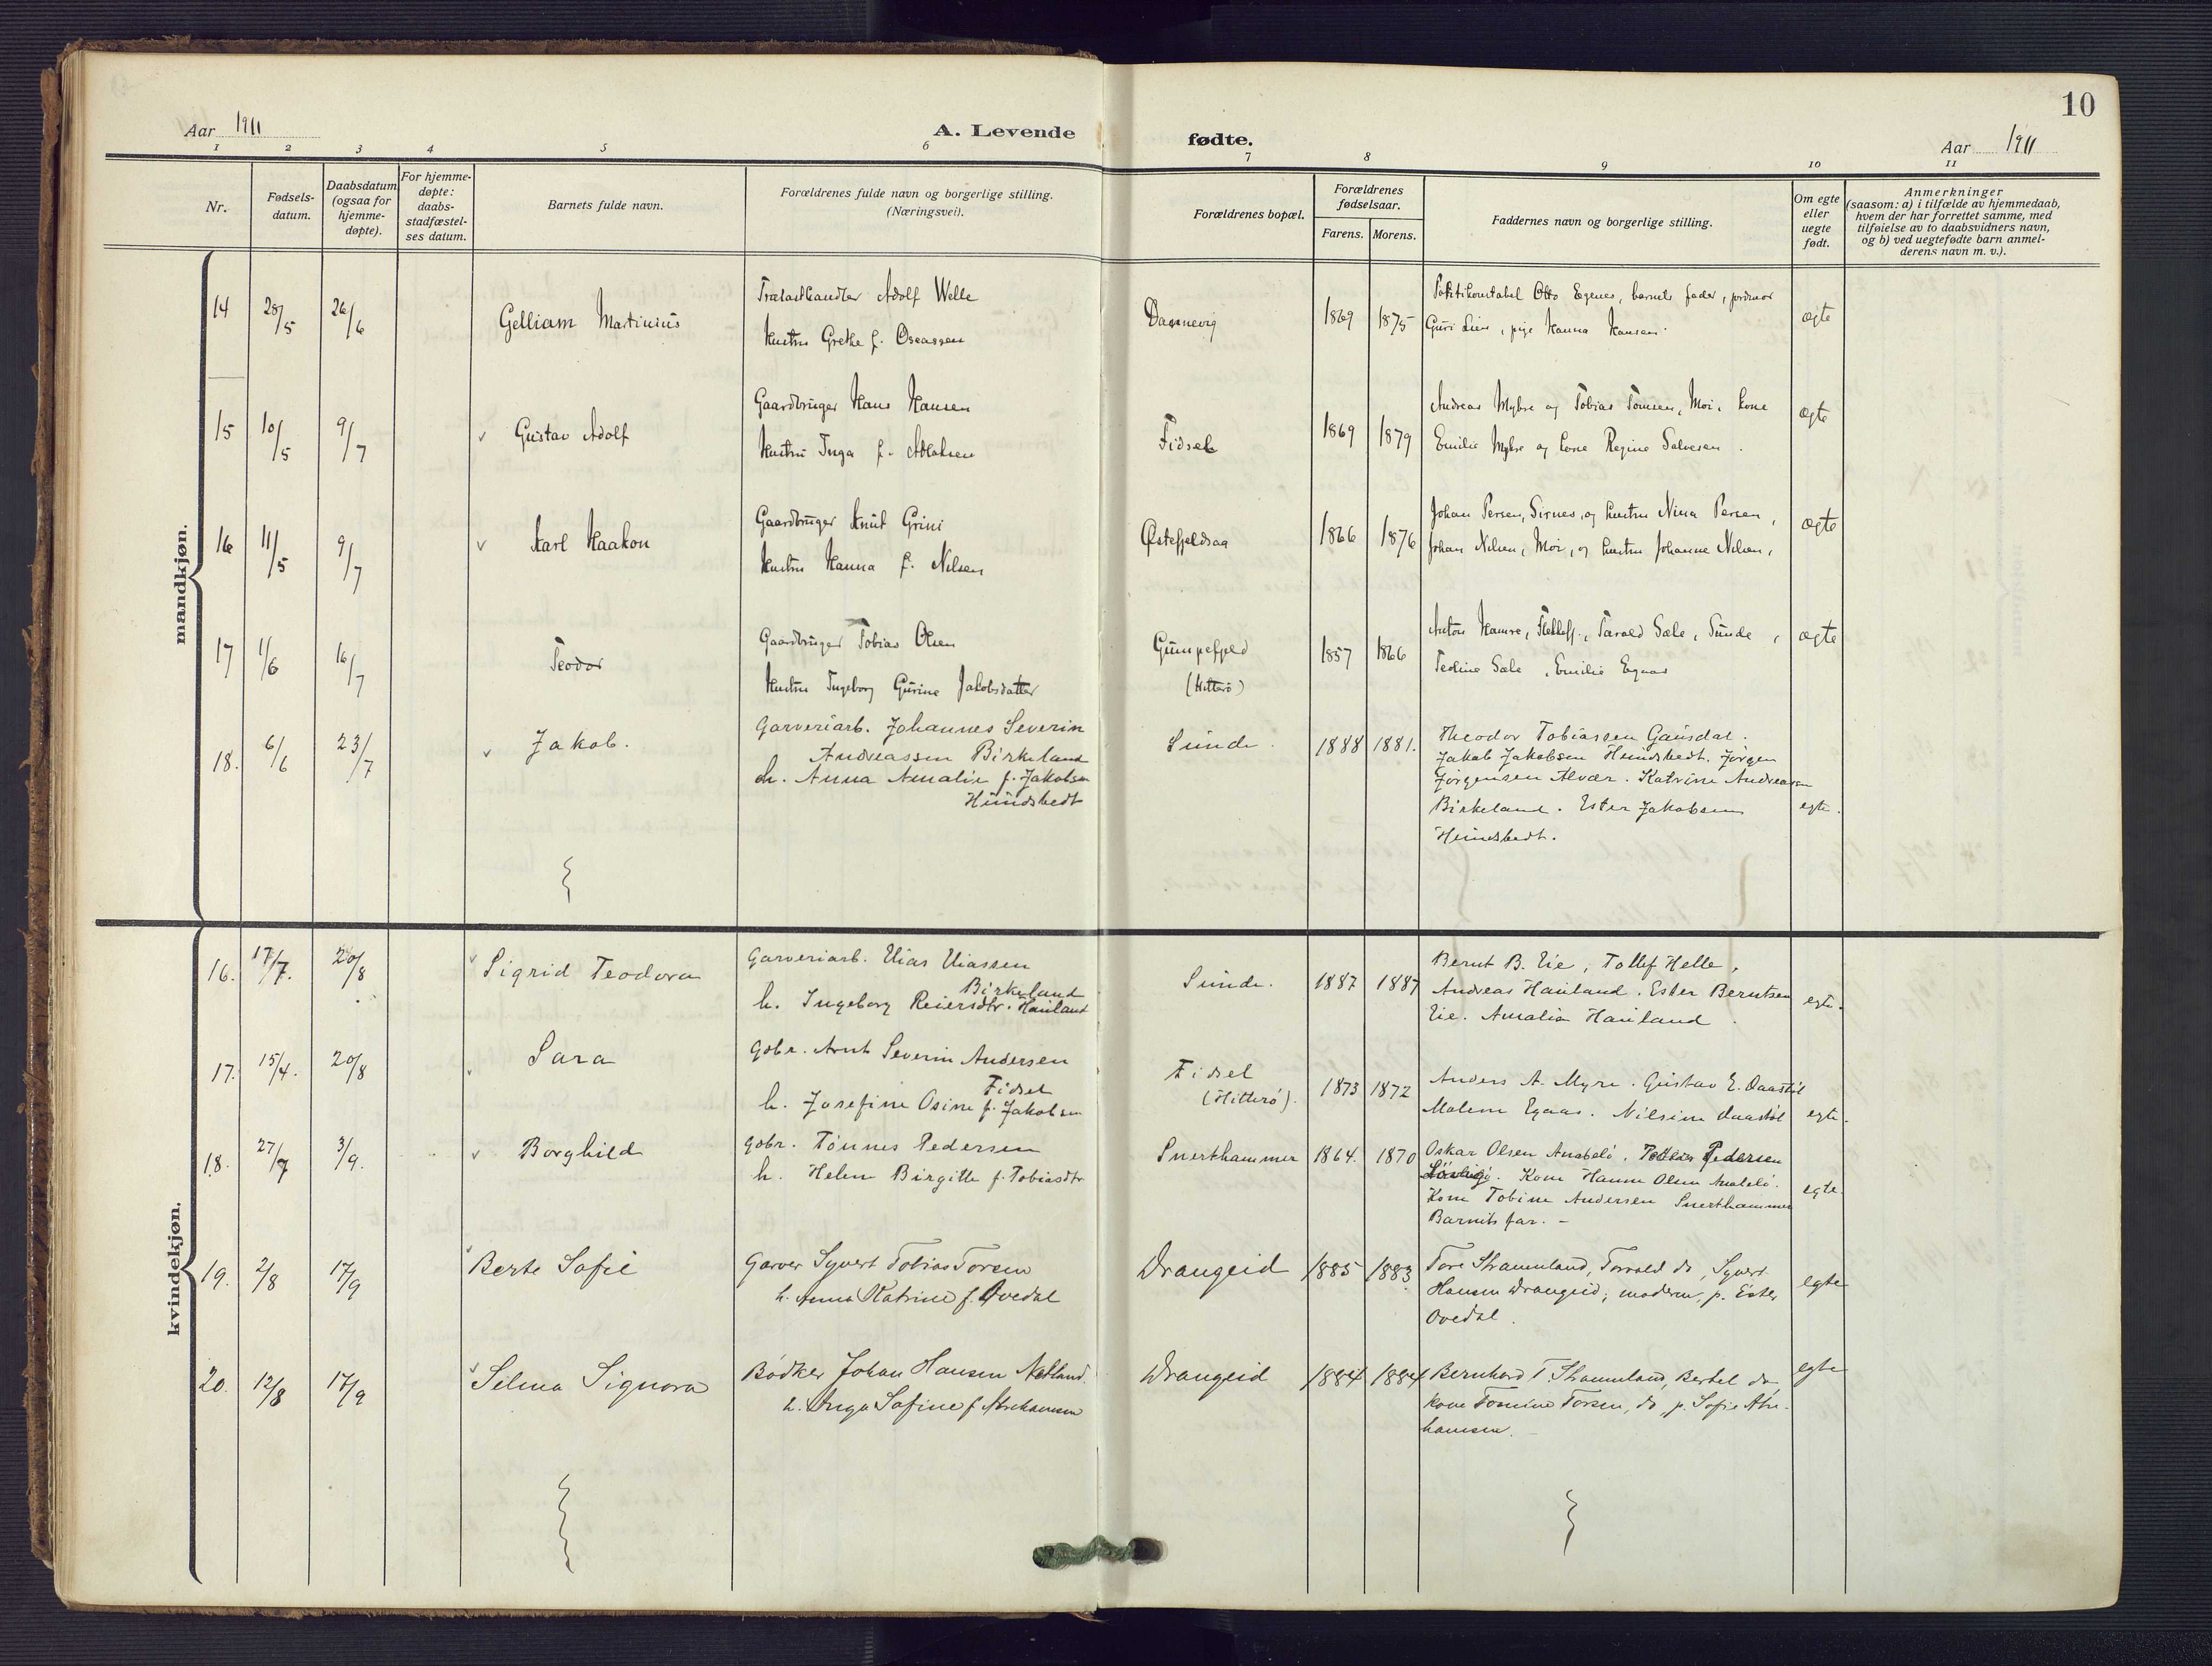 10
Aar 1911
A. Levende
fødte.
Aar 1911
1 2 3 4 5 6 7 8 9 10 11
Nr.
Fødsels-
datum.
Daabsdatum
(ogsaa for
hjemme-
døpte).
For hjemme-
døpte:
daabs-
stadfæstel-
ses datum.
Barnets fulde navn.
Forældrenes fulde navn og borgerlige stilling.
(Næringsvei).
Forældrenes bopæl.
Forældrenes
fødselsaar.
Farens. Morens.
Faddernes navn og borgerlige stilling.
Om egte
eller
uegte
født.
Anmerkninger
(saasom: a) i tilfælde av hjemmedaab,
hvem der har forrettet samme, med
tilføielse av to daabsvidners navn,
og b) ved uegtefødte barn anmel-
derens navn m. v.).
mandkjøn.
14 28/5 26/6
Gelliam Martinius
Trælasthandler Adolf Welle
Hustru Grethe f. Oseassen
Dannevig
1869 1875
Politikonstabel Otto Egenes, barnets fader, jordmor
Guri Lien, pige Hanna Hansen.
ægte
15 10/5 9/7
Gustav Adolf
Gaardbruger Hans Hansen
Hustru Inga f. Adlaksen
Fidsel
1869 1879
Andreas Myhre og Tobias Tomsen, Moi, kone
Emilie Myhre og kone Regine Salvesen.
ægte
16 11/5 9/7
Karl Haakon
Gaardbruger Knut Grini
Hustru Hanna f. Nilsen
Østefjeldsaa
1866 1876
Johan Persen, Sirnes, og hustru Nina Persen,
Johan Nilsen, Moi, og hustru Johanne Nilsen,
ægte
17 1/6 16/7
Teodor
Gaardbruger Tobias Olsen
Hustru Ingeborg Gurine Jakobsdatter
Gumpefjeld
(Hitterø)
1857 1866
Anton Hamre, Tarald Sæle, Sunde,
Tedine Sæle, Emilie Egaas
ægte
18. 6/6 23/7
Jakob.
Garveriarb. Johannes Severin
Andreassen Birkeland
h. Anna Amalie f. Jakobsen
Hundsbedt
Sunde.
1888 1881.
Theodor Tobiassen Gausdal.
Jakob Jakobsen Hundsbedt. Jørgen
Jørgensen Alvær. Katrine Andreassen
Birkeland. Ester Jakobsen
Hundsbedt.
egte.
kvindekjøn.
16. 17/7. 20/8
Sigrid Teodora
Garveriarb. Elias Eliassen
Birkeland
h. Ingeborg Reiersdtr. Hauland
Sunde.
1887 1887
Bernt B. Eie, Tollef Helle,
Andreas Hauland. Ester Berntsen
Eie. Amalia Hauland.
egte.
17. 15/4. 20/8
Sara
gbr. Arnt Severin Andersen
Fidsel
h. Josefine Osine f. Jakobsen
Fidsel
(Hitterø).
1873 1872
Anders A. Myre. Gustav E. Daastøl
Malene Egaas. Nilsine Daastøl
egte.
18. 27/7 3/9.
Borghild
gbr. Tønnes Pedersen
h. Helene Birgitte f. Tobiasdtr
Snerthammer
1864. 1870
Oskar Olsen Anabelø. Pedersen
Kone Hanne Olsen Anabelø.
Kone Tobine Andersen Snerthammer
Barnets far. –
egte.
19. 2/8 17/9
Berte Sofie
Garver Syvert Tobias Torsen
h. Anna Katrine f. Ovedal
Drangeid
1885 1883
Tore Strammland, Torvald do, Syvert
Hansen Drangeid, moderen, p. Ester
Ovedal.
egte
20. 12/8 17/9
Selma Signora
Bødker Johan Hansen Netland.
h. Inga Sofine f. Abrahamsen
Drangeid
1884 1884
Bernhard T. Strammland, Bertel do,
kone Tomine Torsen, do, p. Sofie Abra-
hamsen.
egte